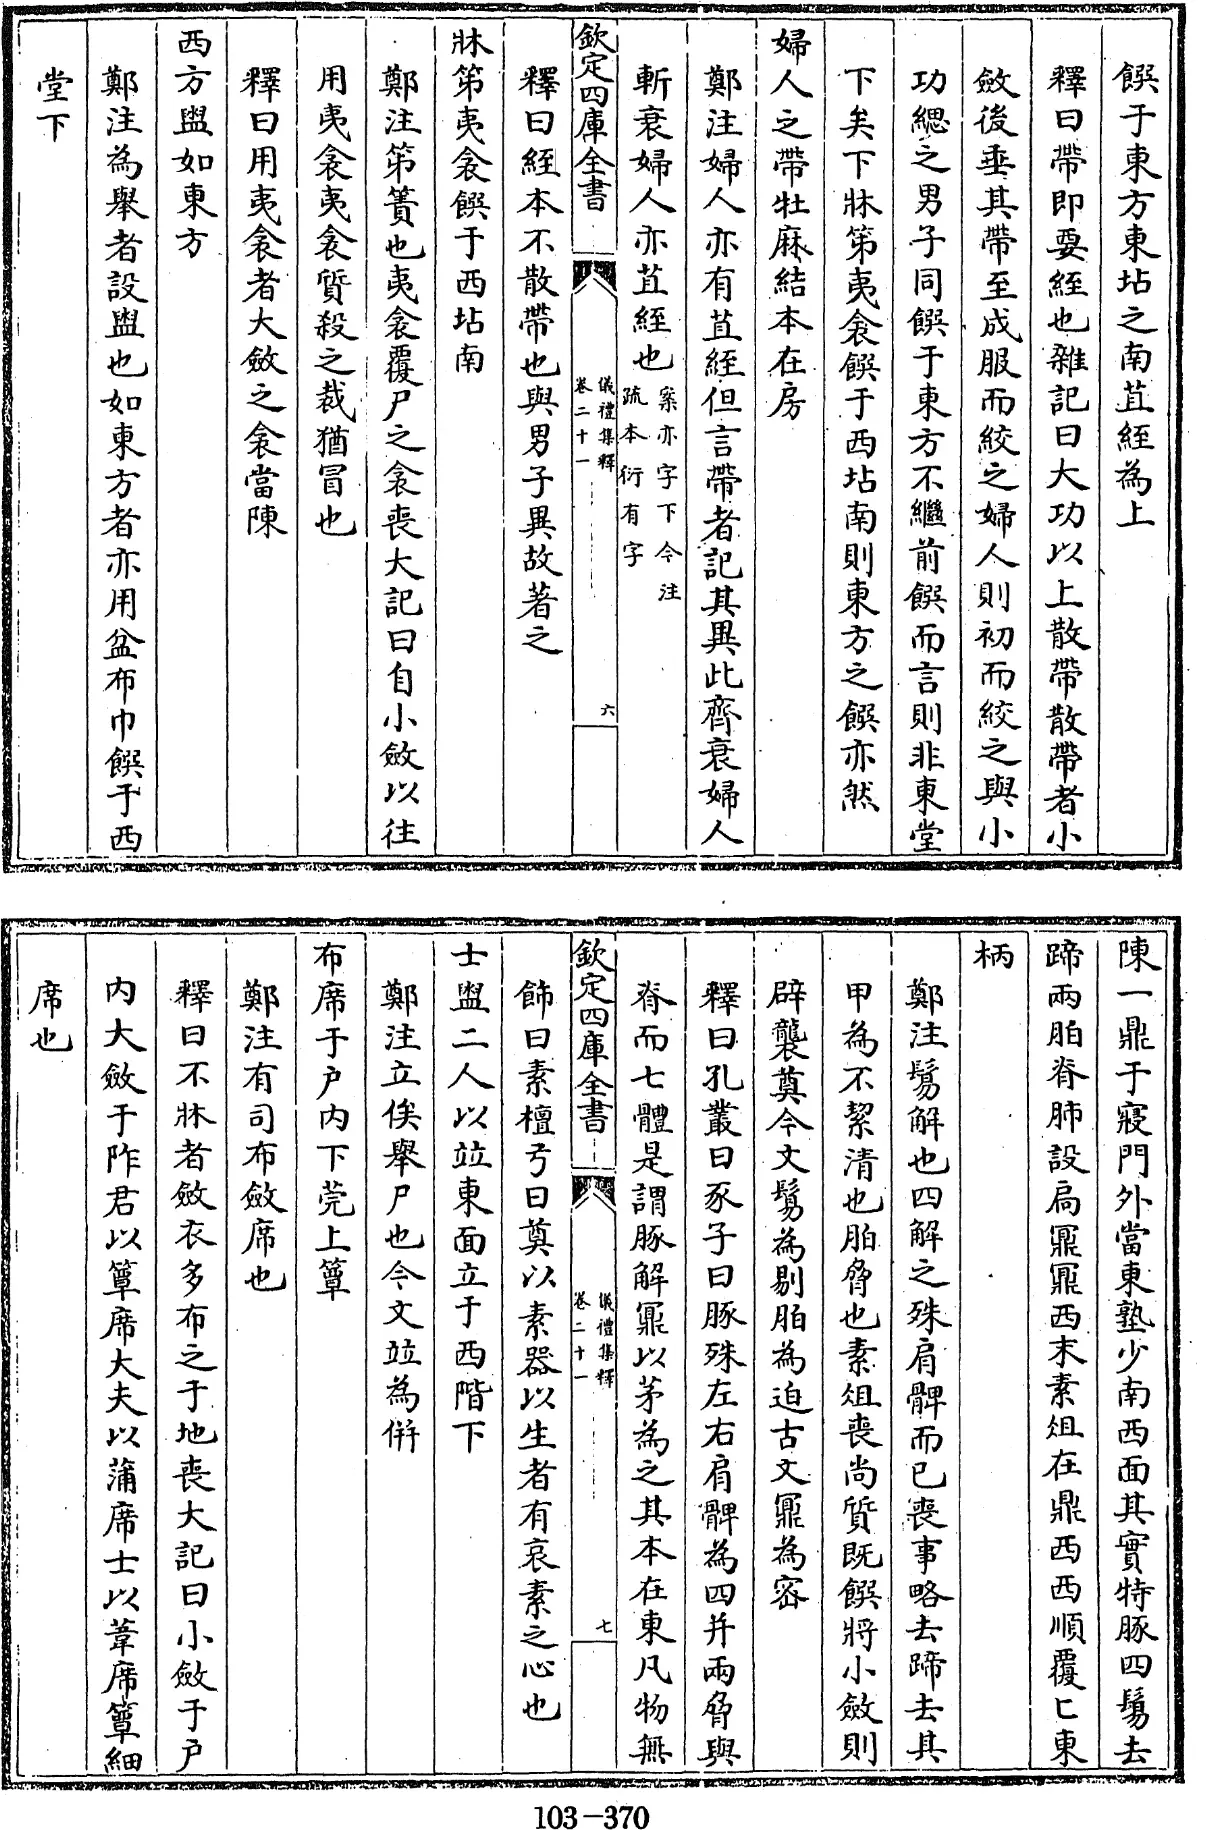 饌于東方東坫之南苴絰為上
釋曰帶即要絰也雜記曰大功以上散帶散帶者小
斂後垂其帶至成服而絞之婦人則初而絞之與小
功緦之男子同饌于東方不繼前饌而言則非東堂
下矣下牀笫夷衾饌于西坫南則東方之饌亦然
婦人之帶牡麻結本在房
鄭注婦人亦有苴絰但言帶者記其異此齊衰婦人
斬衰婦人亦苴絰也案亦字下今注
疏本衍有字
欽定四庫全書
儀禮集釋
卷二十一
六
釋曰絰本不散帶也與男子異故著之
牀笫夷衾饌于西坫南
鄭注笫簀也夷衾覆尸之衾喪大記曰自小斂以往
用夷衾夷衾質殺之裁猶冒也
釋曰用夷衾者大斂之衾當陳
西方盥如東方
鄭注為舉者設盥也如東方者亦用盆布巾饌于西
堂下
陳一鼎于寢門外當東塾少南西面其實特豚四鬄去
蹄兩胉脊肺設扃鼏鼏西末素俎在鼎西西順覆匕東
柄
鄭注鬄解也四解之殊肩髀而已喪事略去蹄去其
甲為不絜清也胉脅也素俎喪尚質既饌將小斂則
辟襲奠今文鬄為剔胉為迫古文鼏為密
釋曰孔叢曰豕子曰豚殊左右肩髀為四并兩脅與
脊而七體是謂豚解鼏以茅為之其本在東凡物無
欽定四庫全書
儀禮集釋
卷二十一
七
飾曰素檀弓曰奠以素器以生者有哀素之心也
士盥二人以竝東面立于西階下
鄭注立俟舉尸也今文竝為併
布席于戶內下莞上簟
鄭注有司布斂席也
釋曰不牀者斂衣多布之于地喪大記曰小斂于戶
內大斂于阼君以簟席大夫以蒲席士以葦席簟細
席也
103-370